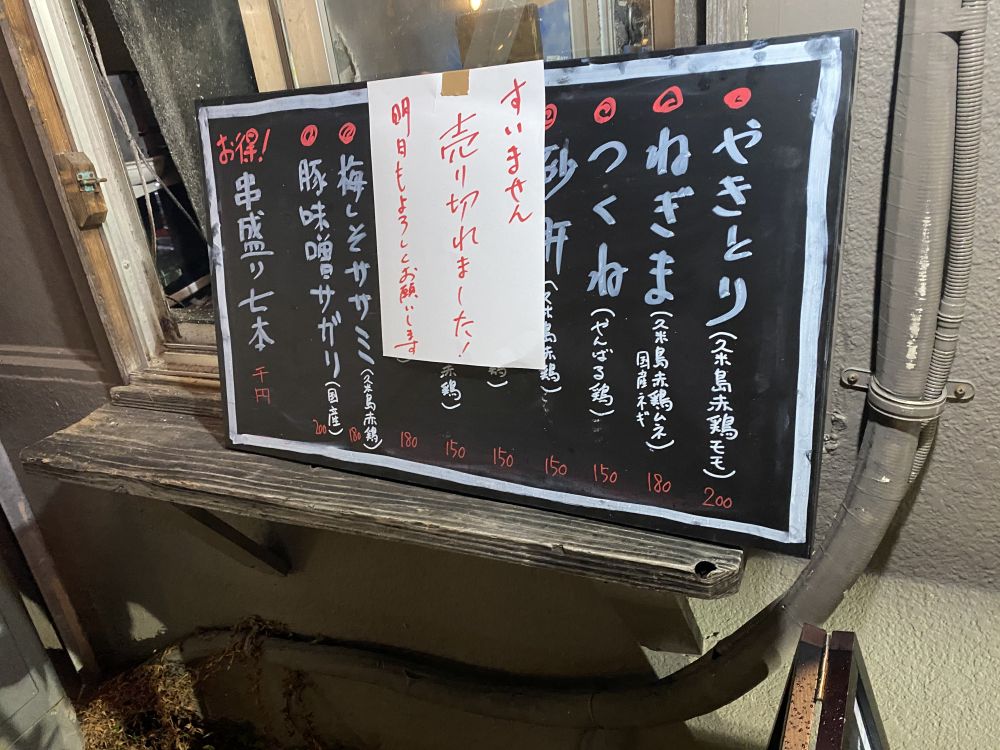 やきとり(久米島赤鶏モモ) 200
ねぎま(久米島赤鶏ムネ 国産ネギ) 180
つくね(やんばる鶏) 150
砂肝(久米島赤鶏) 150
鶏) 150
赤鶏) 150
180
梅しそササミ(久米島赤鶏) 180
豚味噌サガリ(国産) 200
お得!
串盛り七本 千円
すいません
売り切れました!
明日もよろしくお願いします